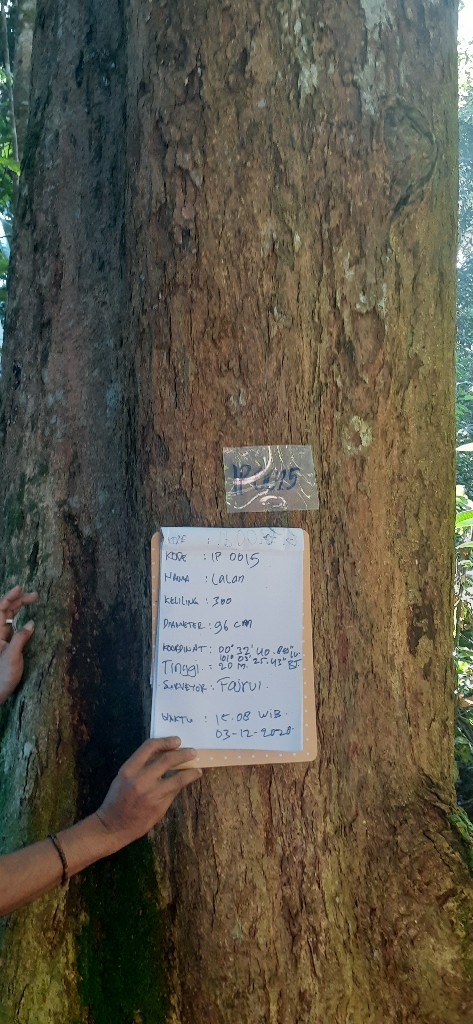 IP 0015
KODE : IP 0015
NAMA : Lalan
KELILING : 300
DIAMETER : 96 cm
KOORDINAT : 00° 32' 40.
101° 03' 25. 43"
Tinggi : 20 M.
SURVEYOR : Fajrul.
WAKTU : 15.08 WIB.
03-12-2020.